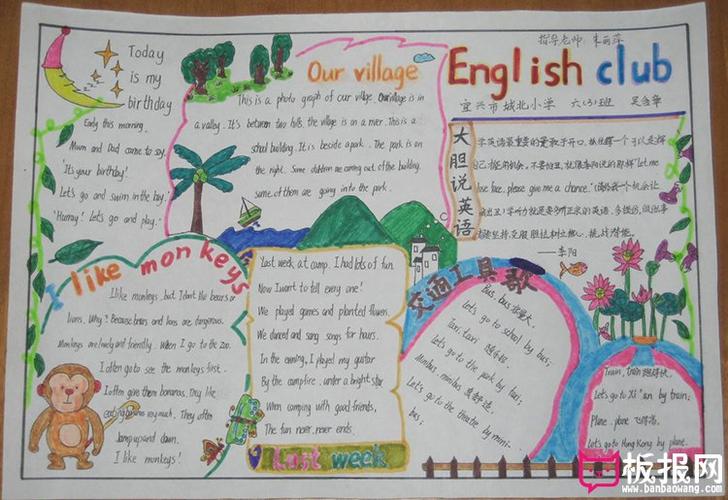 Today
is my
birthday
Early this morning.
Mum and Dad came to say.
"It's your birthday!
Let's go and swim in the bay.
"Hurray! Let's go and play."
Our village
This is a photo graph of our village. Our village is in
a valley. It's between two hills. the village is on a river. This is a
school building. It is beside a park. The park is on
the right. Some children are coming out of the building.
some of them are going into the park.
English club
指导老师：朱丽萍
宜兴市城北小学 六(3)班
大胆说英语
"let me
lose face. please give me a chance."
——李阳
I like monkeys
I like monkeys. but I don't like bears or
lions. Why? Because bears and lions are dangerous.
Monkeys are lively and friendly. When I go to the zoo.
I often go to see the monkeys first.
I often give them bananas. They like
eating bananas very much. They often
jump up and down.
I like monkeys!
Last week at camp. I had lots of fun.
Now I want to tell every one!
We played games and planted flowers.
We danced and sang songs for hours.
In the evening, I played my guitar
By the campfire. under a bright star
When camping with good friends,
The fun never. never ends.
Last week
交通工具歌
Bus, bus
Let's go to school by bus;
Taxi. taxi
Let's go to the park by taxi;
Minibus. minibus
Let's go to the theatre by mini-
bus;
Train, train
Let's go to Xi'an by train;
Plane. plane 飞得高.
Let's go to Hong Kong by plane.
板报网
www.banbaowang.com